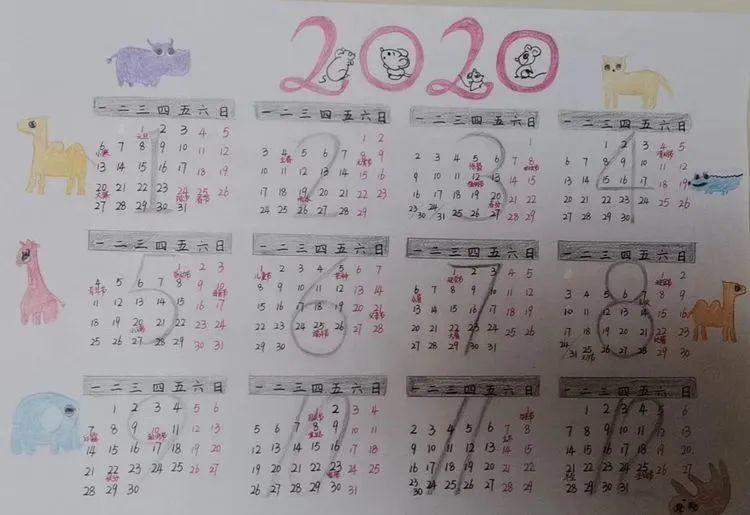 2020
一 二 三 四 五 六 日
1
1 2 3 4 5
元旦
6 7 8 9 10 11 12
小寒
13 14 15 16 17 18 19
20 21 22 23 24 25 26
大寒 除夕 春节
27 28 29 30 31
一 二 三 四 五 六 日
2
1 2
3 4 5 6 7 8 9
立春 元宵节
10 11 12 13 14 15 16
17 18 19 20 21 22 23
雨水
24 25 26 27 28 29
一 二 三 四 五 六 日
3
1
2 3 4 5 6 7 8
惊蛰 妇女节
9 10 11 12 13 14 15
植树节
16 17 18 19 20 21 22
春分
23 24 25 26 27 28 29
30 31
一 二 三 四 五 六 日
4
1 2 3 4 5
清明节
6 7 8 9 10 11 12
13 14 15 16 17 18 19
20 21 22 23 24 25 26
27 28 29 30
一 二 三 四 五 六 日
5
1 2 3
劳动节
4 5 6 7 8 9 10
青年节 母亲节
11 12 13 14 15 16 17
18 19 20 21 22 23 24
小满
25 26 27 28 29 30 31
一 二 三 四 五 六 日
6
1 2 3 4 5 6 7
儿童节 芒种
8 9 10 11 12 13 14
15 16 17 18 19 20 21
父亲节
22 23 24 25 26 27 28
端午节
29 30
一 二 三 四 五 六 日
7
1 2 3 4 5
建党节
6 7 8 9 10 11 12
小暑
13 14 15 16 17 18 19
20 21 22 23 24 25 26
大暑
27 28 29 30 31
一 二 三 四 五 六 日
8
1 2
建军节
3 4 5 6 7 8 9
立秋
10 11 12 13 14 15 16
17 18 19 20 21 22 23
处暑
24/31 25 26 27 28 29 30
一 二 三 四 五 六 日
9
1 2 3 4 5 6
7 8 9 10 11 12 13
白露 教师节
14 15 16 17 18 19 20
21 22 23 24 25 26 27
秋分
28 29 30
一 二 三 四 五 六 日
10
1 2 3 4
国庆节
5 6 7 8 9 10 11
寒露
12 13 14 15 16 17 18
19 20 21 22 23 24 25
霜降
26 27 28 29 30 31
一 二 三 四 五 六 日
11
2 3 4 5 6 7 8
立冬
9 10 11 12 13 14 15
16 17 18 19 20 21 22
23 24 25 26 27 28 29
30
一 二 三 四 五 六 日
12
1 2 3 4 5 6
7 8 9 10 11 12 13
14 15 16 17 18 19 20
21 22 23 24 25 26 27
冬至 圣诞节
28 29 30 31